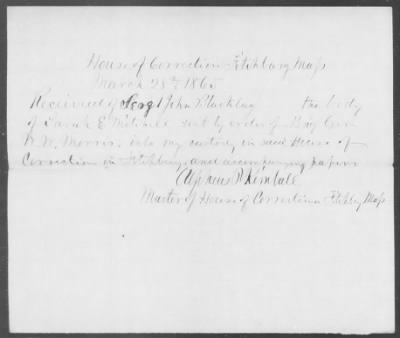 House of Correction Fitchburg Mass
March 28th 1865
Received of Sergt John the body
of Sarah E Mitchell sent by order of Brig Genl
W. W. Morris, into my custody in said House of
Correction in Fitchburg and accompanying papers
Alpheus P. Kimball
Master of House of Correction Fitchbg Mass